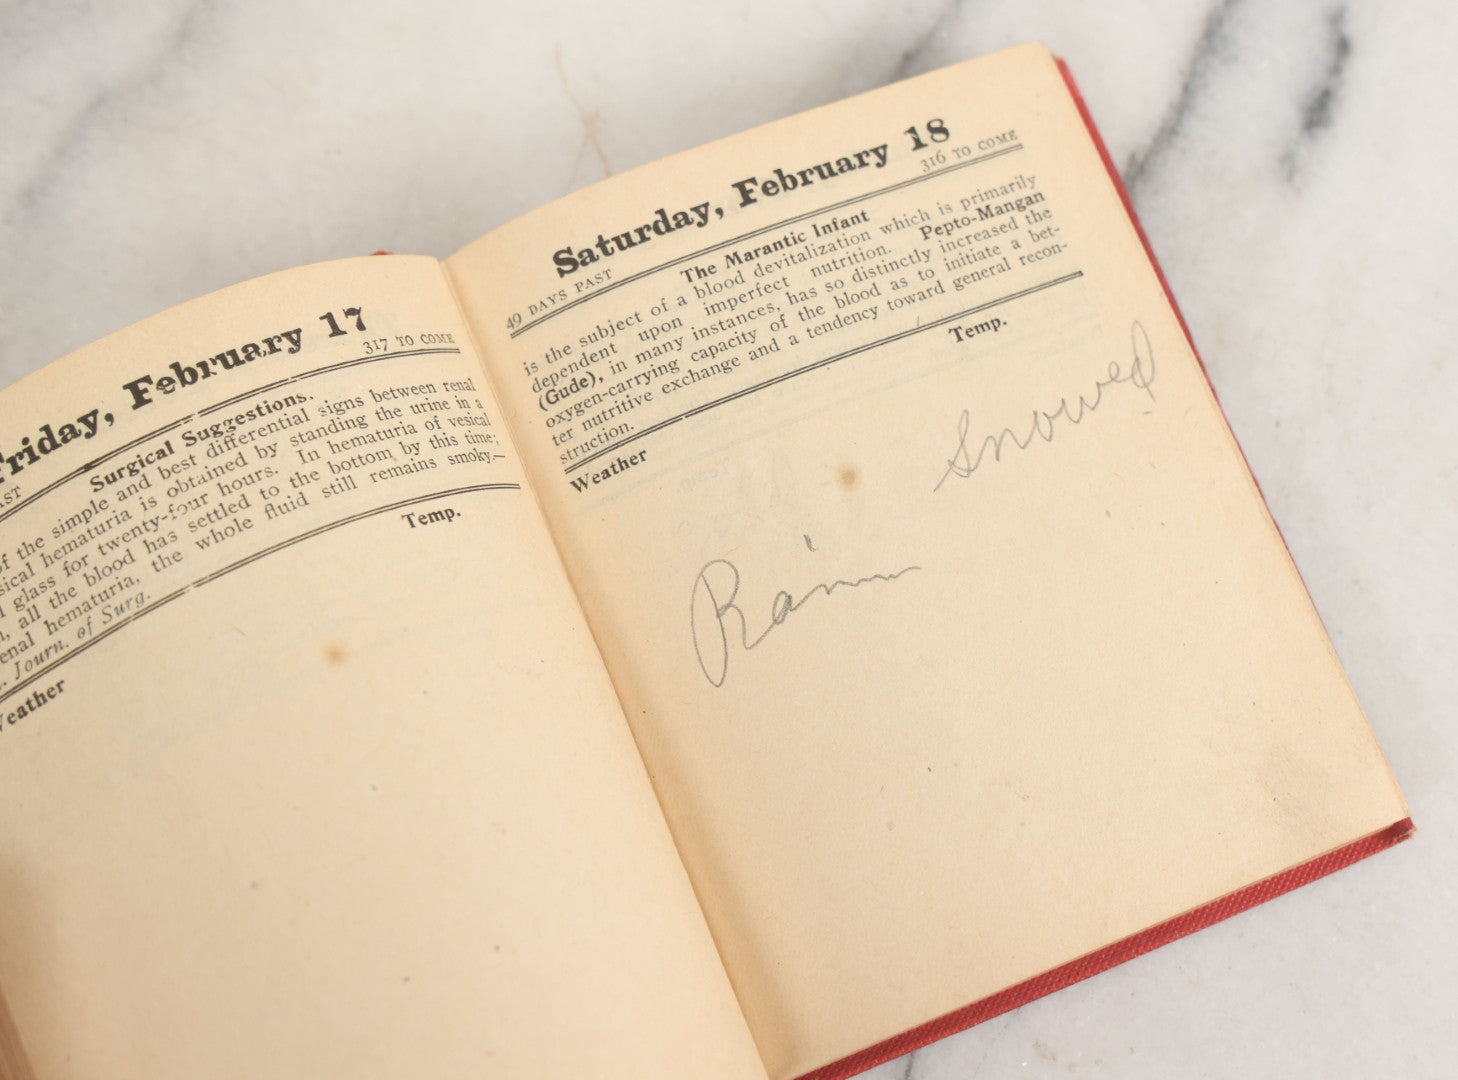 Friday, February 17
PAST 317 TO COME
Surgical Suggestions.
of the simple and best differential signs between renal
vesical hematuria is obtained by standing the urine in a
glass for twenty-four hours. In hematuria of vesical
all the blood has settled to the bottom by this time;
renal hematuria, the whole fluid still remains smoky.—
Journ. of Surg.
Weather Temp.
Saturday, February 18
49 DAYS PAST 316 TO COME
The Marantic Infant
is the subject of a blood devitalization which is primarily
dependent upon imperfect nutrition. Pepto-Mangan
(Gude), in many instances, has so distinctly increased the
oxygen-carrying capacity of the blood as to initiate a bet-
ter nutritive exchange and a tendency toward general recon-
struction.
Weather Temp.
Snowed
Rain